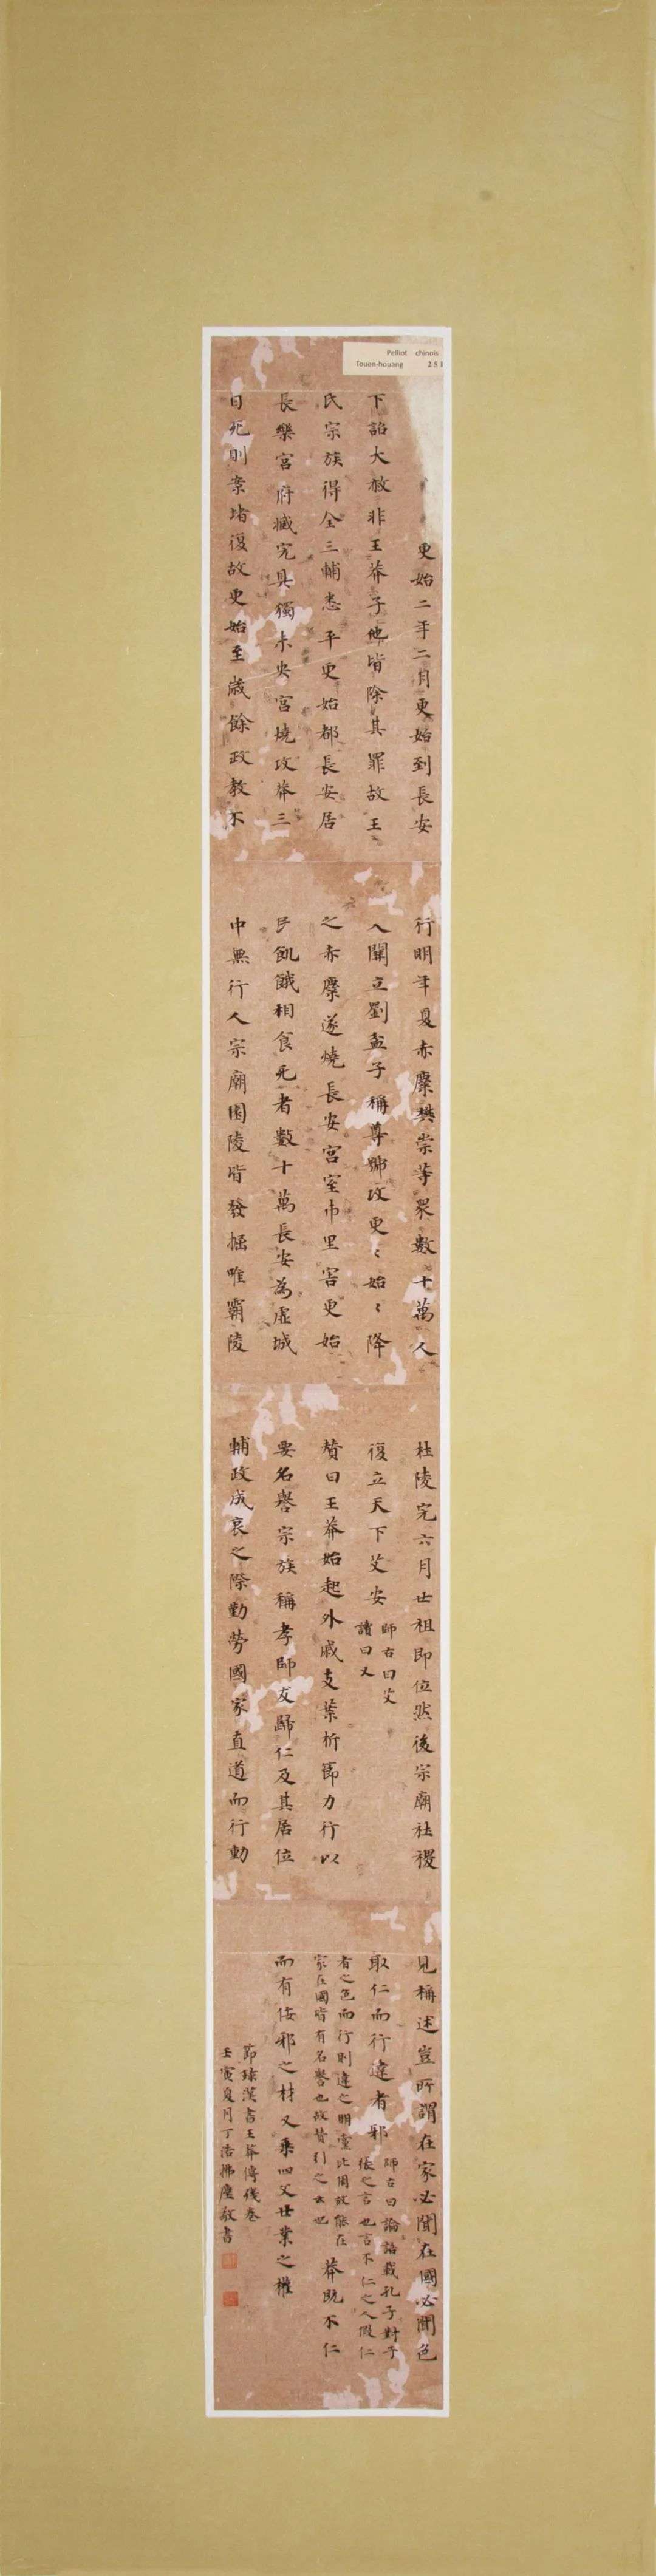 Pelliot chinois
Touen-houang 251
更始二年二月更始到長安
下詔大赦非王莽子他皆除其罪故王
氏宗族得全三輔悉平更始都長安居
長樂宮府臧完具獨未央宮燒攻莽三
日死則案堵復故更始至歲餘政教不
行明年夏赤糜樊崇等眾數十萬人
入關立劉盆子稱尊號攻更〻始〻降
之赤糜遂燒長安宮室市里害更始
民飢餓相食死者數十萬長安為虛城
中無行人宗廟園陵皆發掘唯霸陵
杜陵完六月世祖即位然後宗廟社稷
復立天下艾安
師古曰艾
讀曰乂
贊曰王莽始起外戚支葉折節力行以
要名譽宗族稱孝師友歸仁及其居位
輔政成哀之際勤勞國家直道而行動
見稱述豈所謂在家必聞在國必聞色
取仁而行違者邪
師古曰論語載孔子對子
張之言也言不仁之人假仁
者之色而行則違之朋黨比周故能在
家在國皆有名譽也故贊引之云也
莽既不仁
而有佞邪之材又乘四父世業之權
節錄漢書王莽傳殘卷
壬寅夏月丁浩拂塵敬書